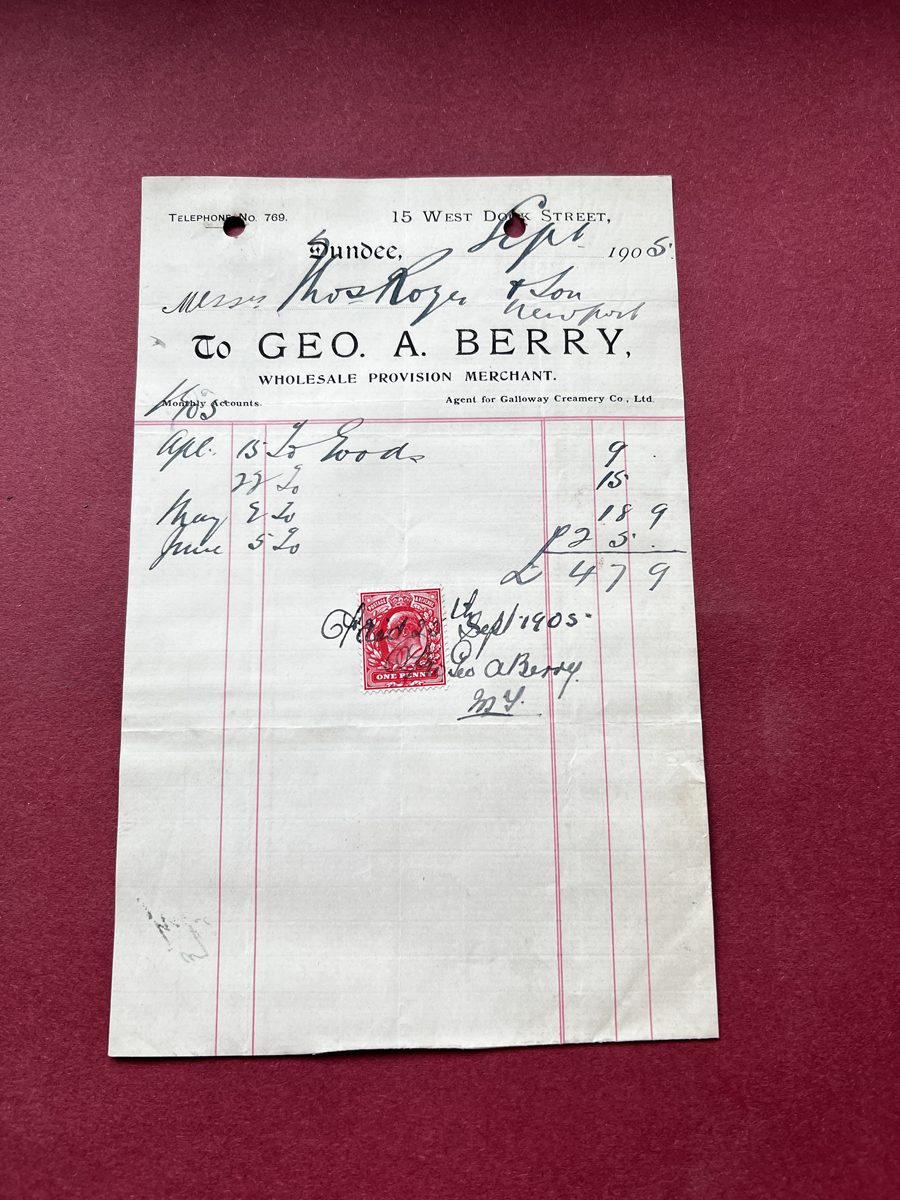 TELEPHONE NO. 769.
15 WEST DOCK STREET,
Dundee, Sept 1905.
Messrs Thos Roger & Son
Newport
To GEO. A. BERRY,
WHOLESALE PROVISION MERCHANT.
Monthly Accounts.
Agent for Galloway Creamery Co., Ltd.
1905
Apl. 15 To Goods 9 .
To 15
May To 18 9
June 5 To 2 5 .
£ 4 7 9
POSTAGE & REVENUE
ONE PENNY
Paid Sept 1905
Geo A Berry.